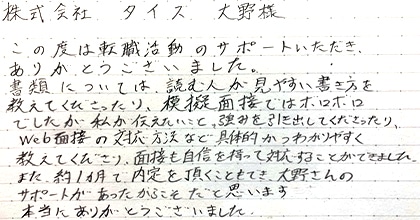 株式会社 タイズ 大野様
この度は転職活動のサポートいただき、
ありがとうございました。
書類については、読む人が見やすい書き方を
教えてくださったり、模擬面接ではボロボロ
でしたが私が伝えたいこと、強みを引き出してくださったり、
Web面接の対応方法など具体的かつわかりやすく
教えてくださり、面接も自信を持って対応することができました。
また、約1カ月で内定を頂くこともでき、大野さんの
サポートがあったからこそだと思います
本当にありがとうございました。